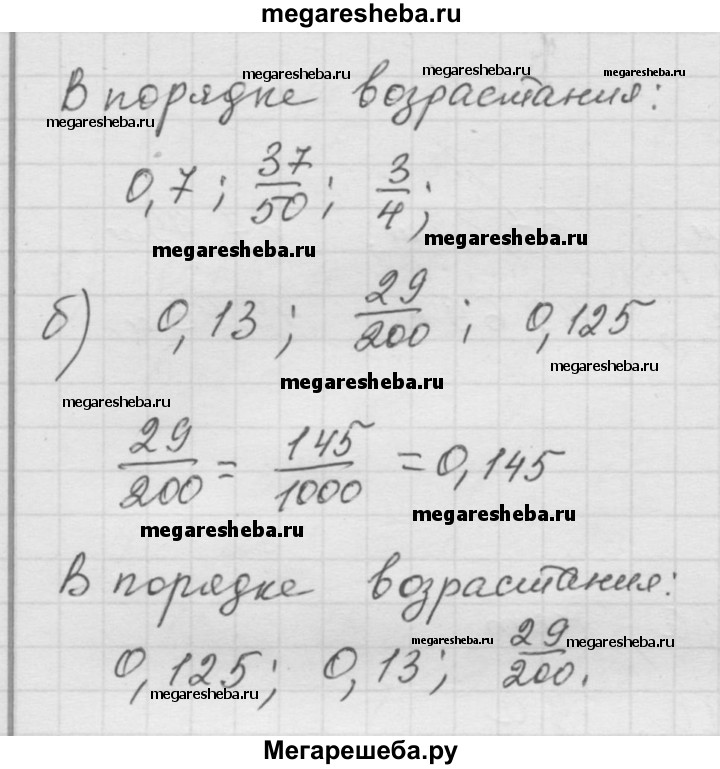 megaresheba.ru
megaresheba.ru megaresheba.ru megaresheba.ru
В порядке возрастания:
megaresheba.ru
0,7; 37/50; 3/4;
megaresheba.ru megaresheba.ru
б) 0,13; 29/200; 0,125
megaresheba.ru
megaresheba.ru
megaresheba.ru
29/200 = 145/1000 = 0,145
megaresheba.ru megaresheba.ru
В порядке возрастания:
megaresheba.ru megaresheba.ru
0,125; 0,13; 29/200.
megaresheba.ru
Мегарешеба.ру